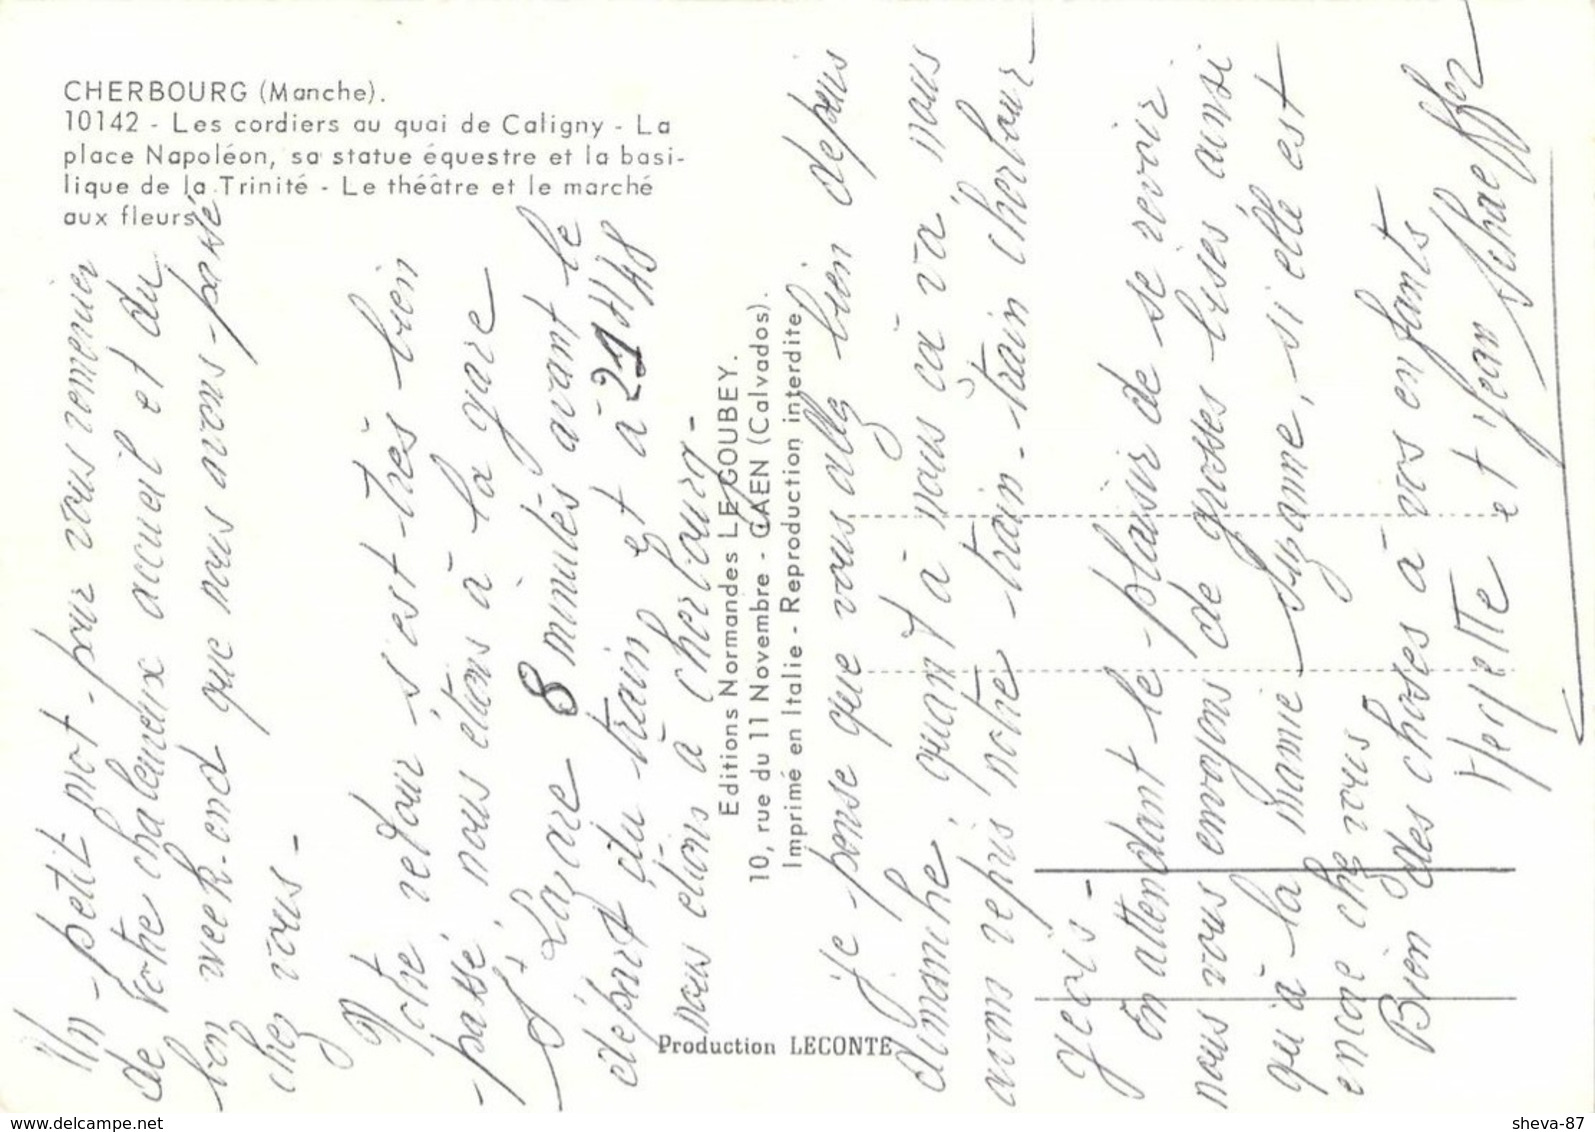 CHERBOURG (Manche).
10142 - Les cordiers au quai de Caligny - La
place Napoléon, sa statue équestre et la basi-
lique de la Trinité - Le théâtre et le marché
aux fleurs.
Un petit mot pour vous remercier
de votre chaleureux accueil et du
bon week-end que nous avons passé
chez vous -
Notre retour s'est très bien
passé, nous étions à la gare
St Lazare 8 minutes avant le
départ du train et à 21H48
nous étions à Cherbourg -
Editions Normandes LE GOUBEY.
10, rue du 11 Novembre - CAEN (Calvados).
Imprimé en Italie - Reproduction interdite
Production LECONTE
Je pense que vous allez bien depuis
dimanche, quant à nous ça va, nous
avons repris notre train-train Cherbour-
geois -
En attendant le plaisir de se revoir
nous vous envoyons de grosses bises ainsi
qu'à la mamie Suzanne, si elle est
encore chez vous
Bien des choses à vos enfants
et Jean Schaeffer
www.delcampe.net
sheva-87